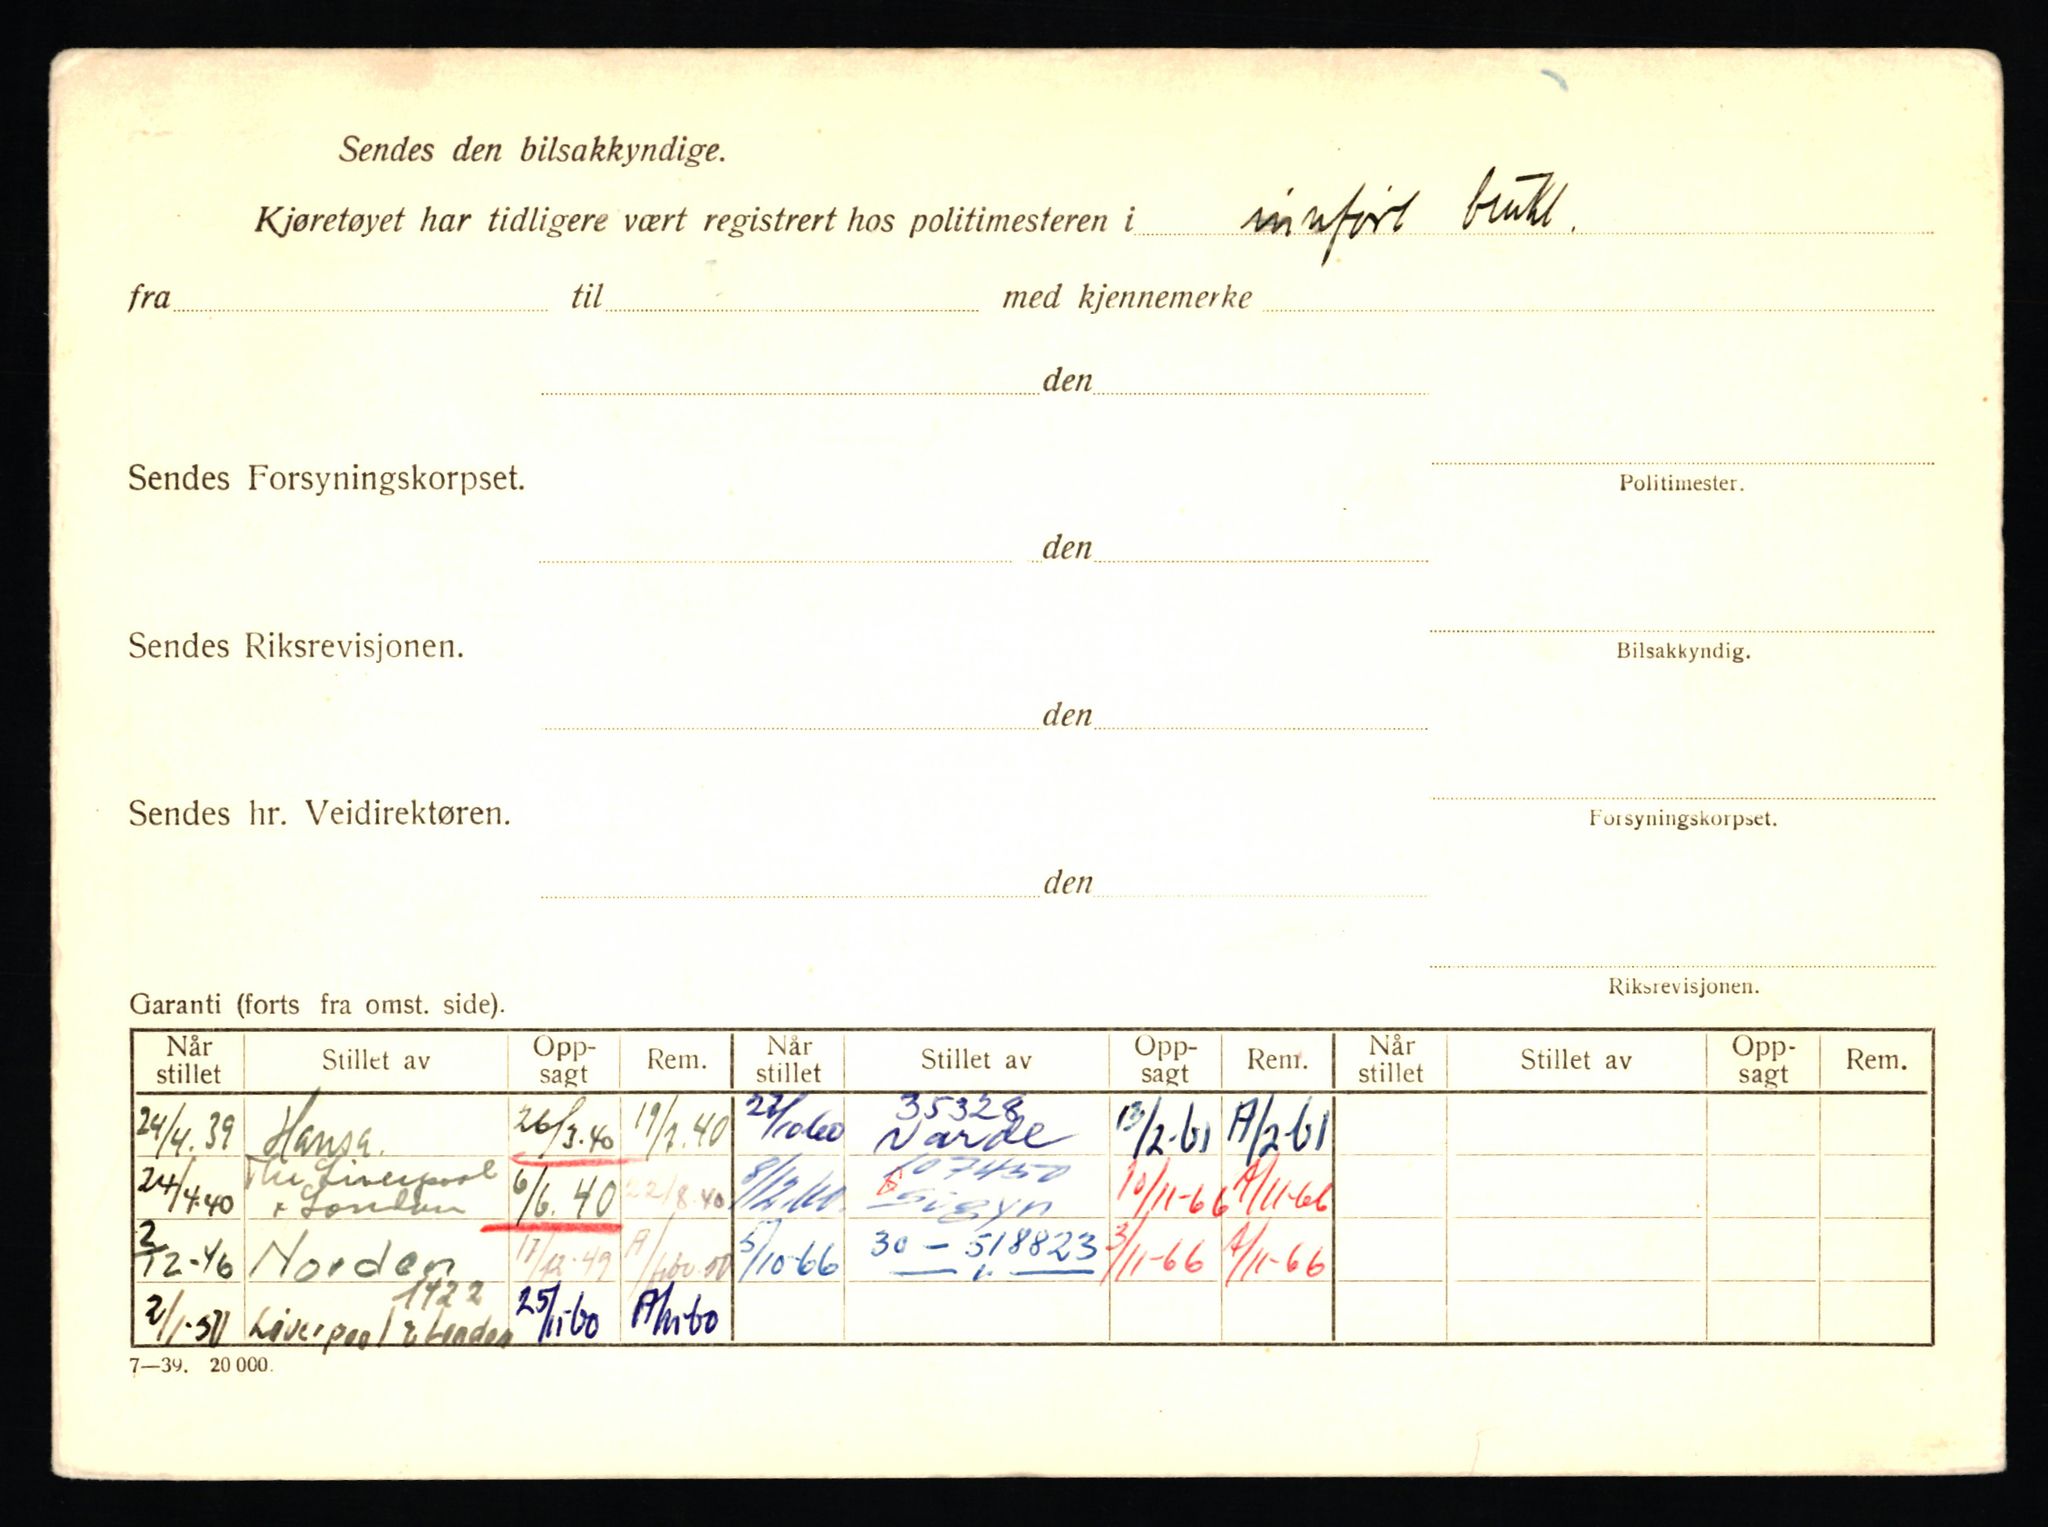 Sendes den bilsakkyndige.
Kjøretøyet har tidligere vært registrert hos politimesteren i innført brukt.
fra til med kjennemerke
den
Sendes Forsyningskorpset.
Politimester.
den
Sendes Riksrevisjonen.
Bilsakkyndig.
den
Sendes hr. Veidirektøren.
Forsyningskorpset.
den
Riksrevisjonen.
Garanti (forts fra omst. side).
Når stillet Stillet av Opp-sagt Rem. Når stillet Stillet av Opp-sagt Rem. Når stillet Stillet av Opp-sagt Rem.
24/4.39 Hansa. 26/3.40 19/7.40 22/10-60 35328 Varde 13/2-61 A/2-61
24/4.40 The Liverpool & London 6/6.40 22/8.40 8/12.60. 107450 Sigyn 10/11-66 A/11-66
2/12-46 Norden 17/12-49 5/10-66 30-518823 — " — 3/11-66 A/11-66
2/1-50 1422 Liverpool & London 25/11-60 A/11-60
7—39. 20 000.